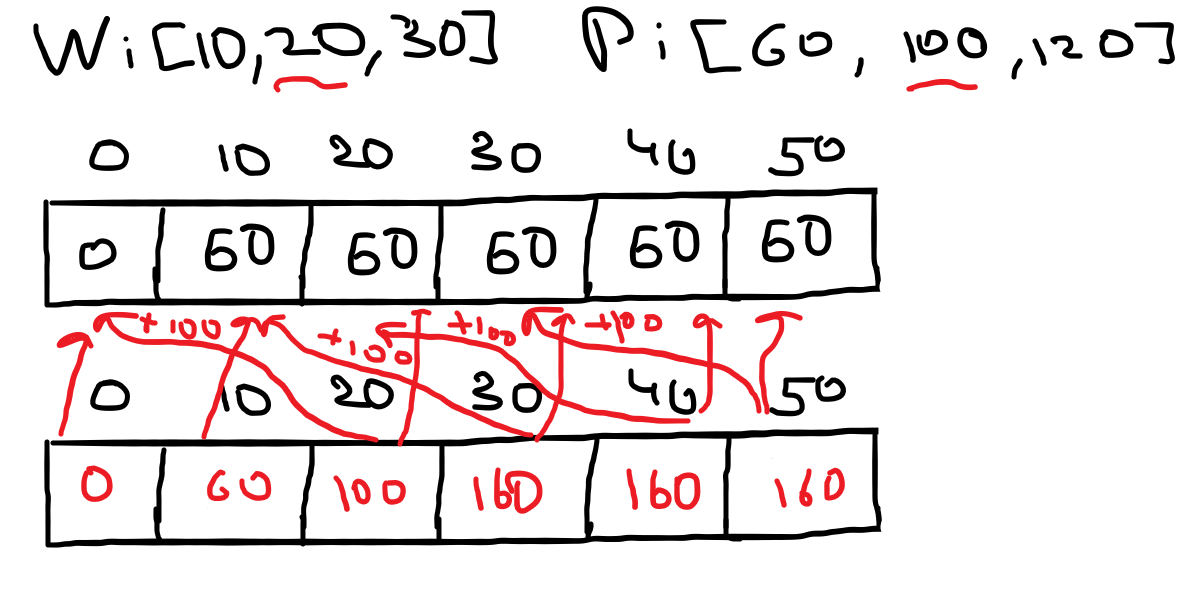 Wi[10,20,30] Pi[60,100,120]
0 10 20 30 40 50
0 60 60 60 60 60
+100 +100 +100 +100
0 10 20 30 40 50
0 60 100 160 160 160